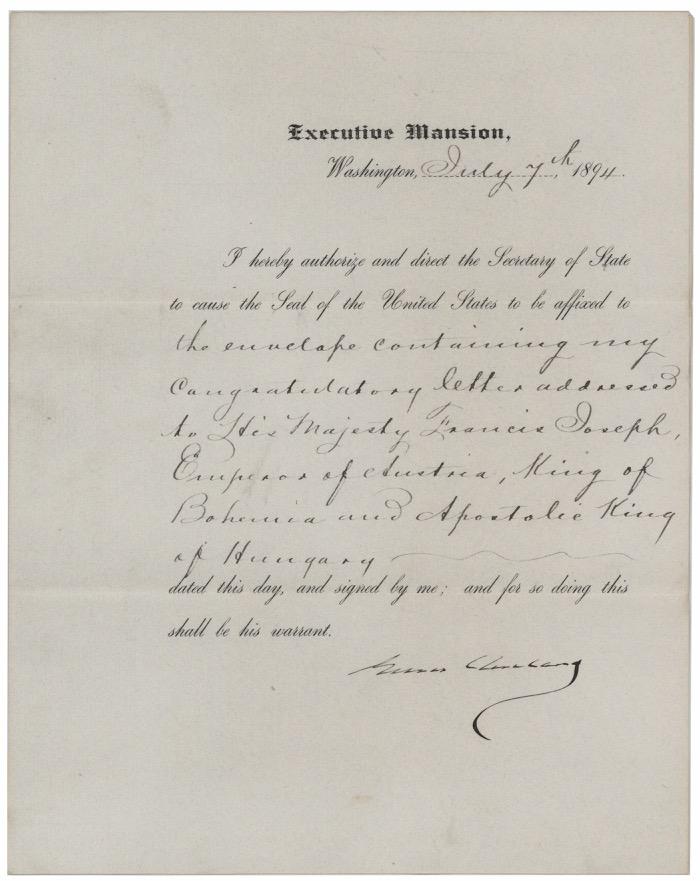 Executive Mansion,
Washington, July 7th, 1894.
I hereby authorize and direct the Secretary of State
to cause the Seal of the United States to be affixed to
the envelope containing my
Congratulatory letter addressed
to His Majesty Francis Joseph,
Emperor of Austria, King of
Bohemia and Apostolic King
of Hungary
dated this day, and signed by me; and for so doing this
shall be his warrant.
Grover Cleveland